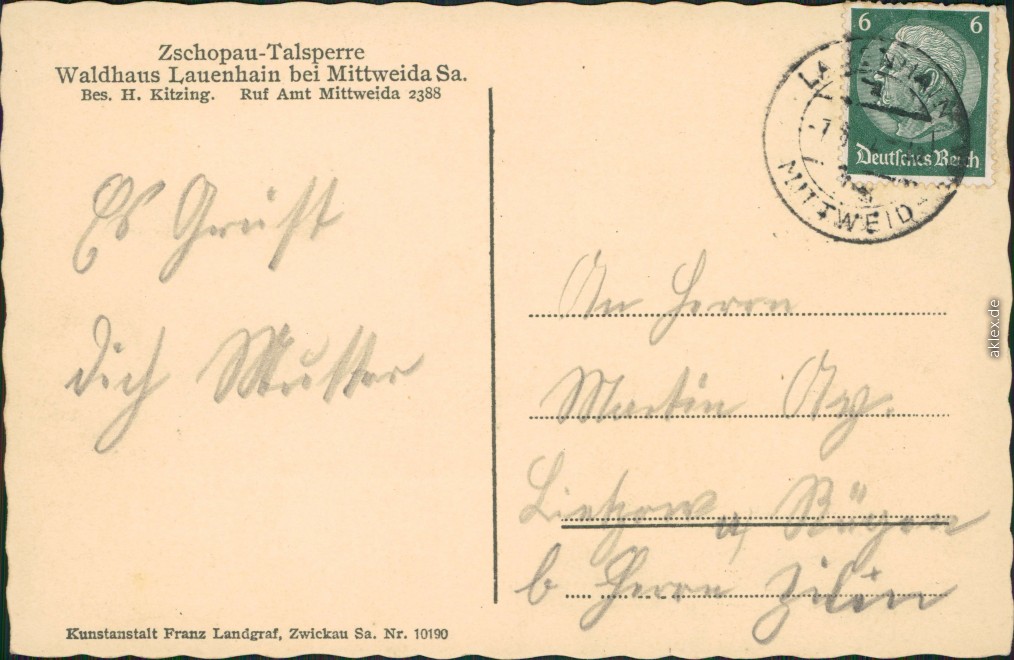 Zschopau-Talsperre
Waldhaus Lauenhain bei Mittweida Sa.
Bes. H. Kitzing. Ruf Amt Mittweida 2388
6 6
Deutsches Reich
MITTWEIDA
Es Grüßt
dich Mutter
An Herrn
Martin
Lietzow a, Rügen
b Herrn
Kunstanstalt Franz Landgraf, Zwickau Sa. Nr. 10190
aklex.de